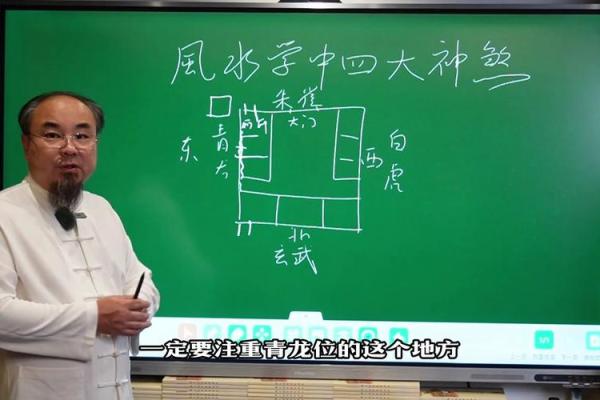 風水学中四大神煞
朱雀
大门
东
青龙
西
白虎
北
玄武
一定要注重青龙位的这个地方